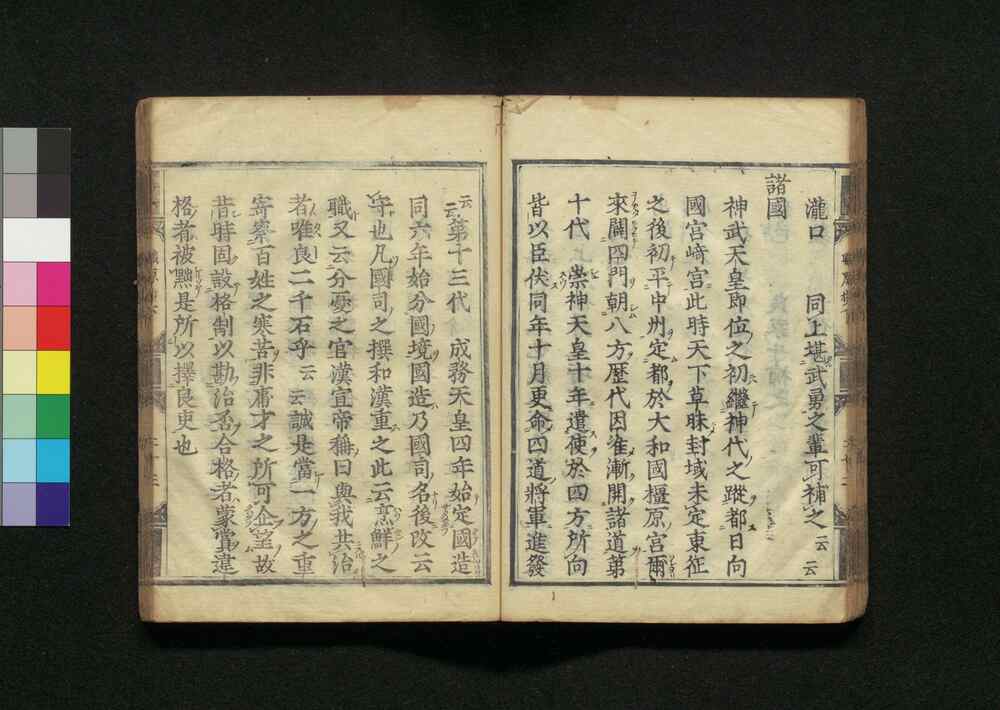 瀧口　同上堪武勇之輩可補之云云
諸國
神武天皇即位之初繼神代之蹤都日向
國宮﨑宮此時天下草昧封域未定東征
之後初平中州定都於大和國橿原宮爾
來闢四門朝八方歷代因准漸開諸道第
十代　崇神天皇十年遣使於四方所向
皆以臣伏同年十月更命四道將軍進發
云云第十三代　成務天皇四年始定國造
同六年始分國境國造乃國司名後改云
守也凡國司之撰和漢重之此云烹鮮之
職又云分憂之官漢宣帝稱曰與我共治
者唯良二千石乎云云誠是當一方之重
寄察百姓之寒苦非庸才之所可企望故
昔時固設格制以勘治否合格者蒙賞違
格者被黜是所以擇良吏也